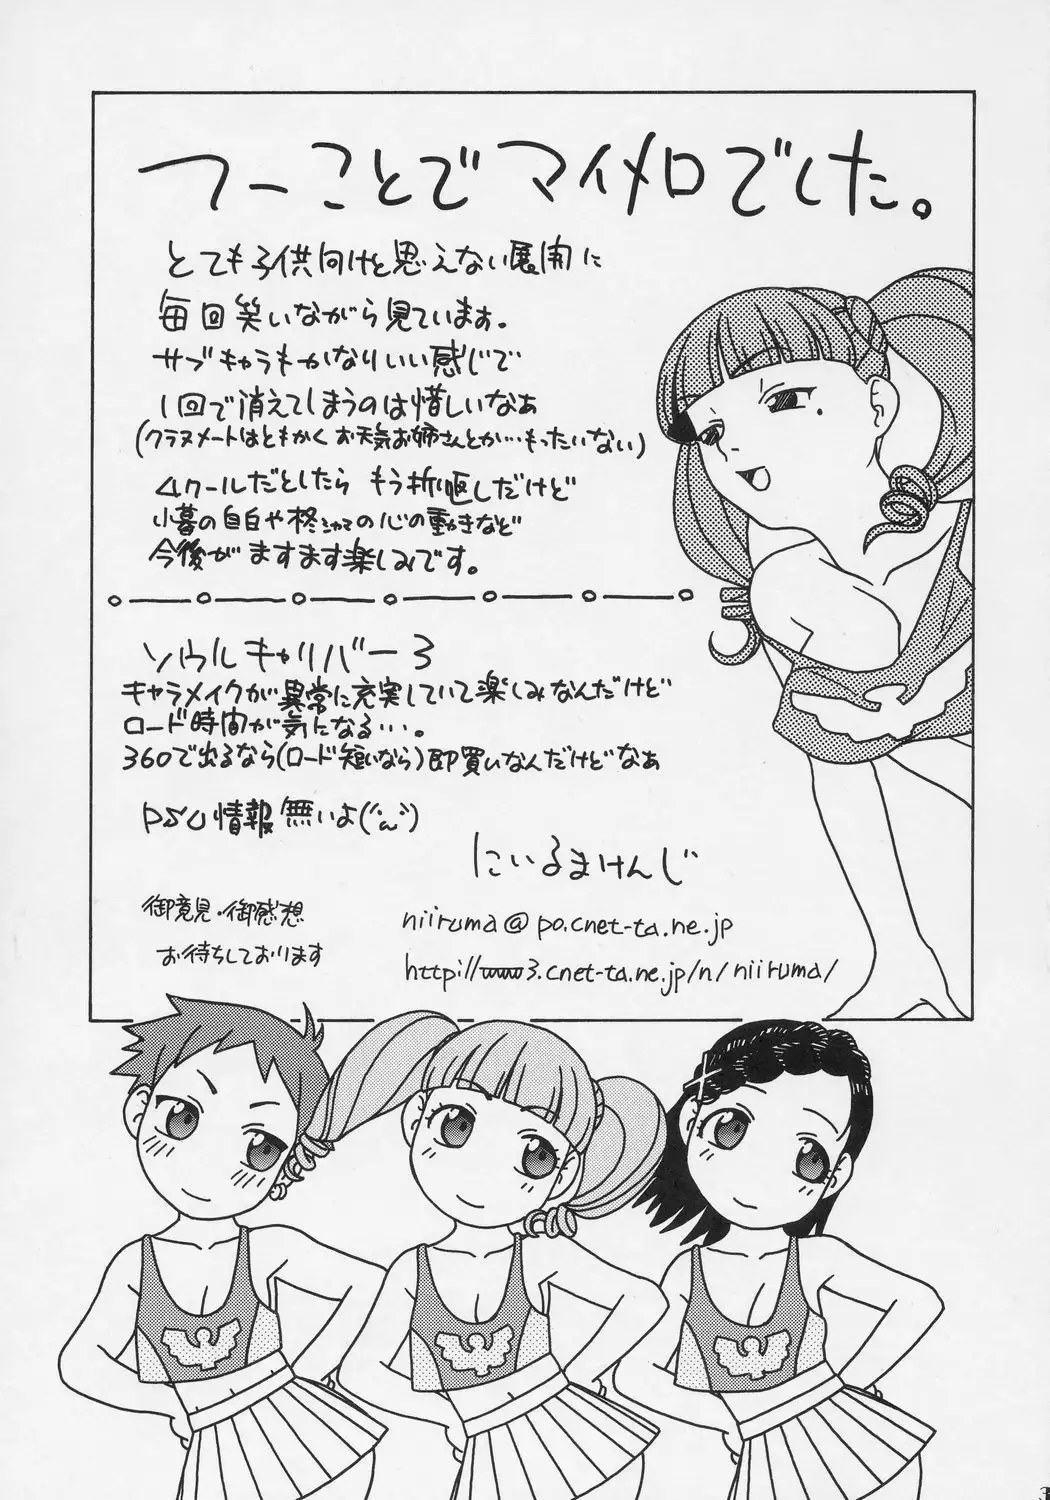 つーことでマイメロでした。
とても子供向けと思えない展開に
毎回笑いながら見ています。
サブキャラもかなりいい感じで
1回で消えてしまうのは惜しいなあ
(クラスメートはともかく お天気お姉さんとか…もったいない)
4クールだとしたら もう折り返しだけど
小暮の自白や柊の心の動きなど
今後がますます楽しみです。
ソウルキャリバー3
キャラメイクが異常に充実していて楽しみなんだけど
ロード時間が気になる…。
360で出るなら(ロード短いなら)即買いなんだけどなぁ
PSU情報無いよ
にいるまけんじ
御意見・御感想
お待ちしております
niiruma@po.cnet-ta.ne.jp
http://www3.cnet-ta.ne.jp/n/niiruma/